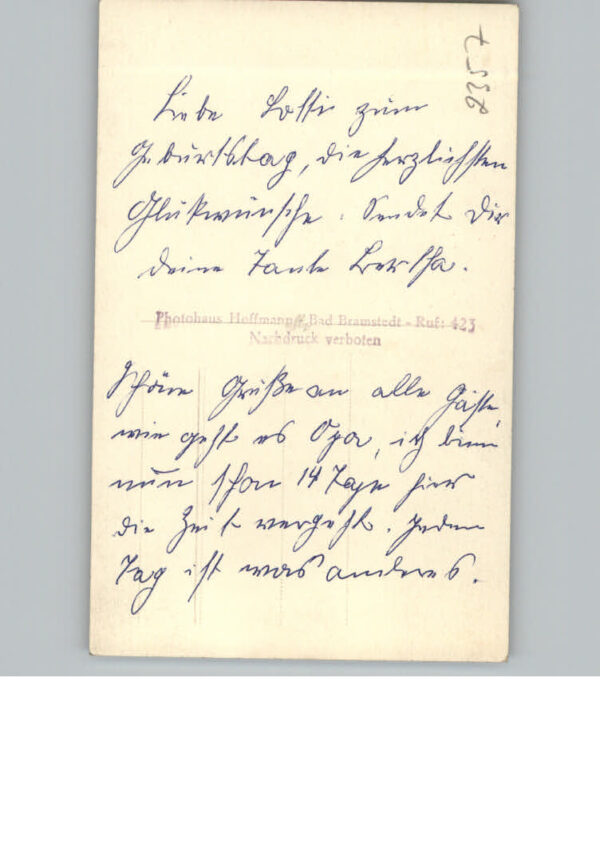 Liebe Lotti zum
Geburtstag, die herzlichsten
Glükwünsche. Sendet Dir
deine Tante Bertha.
Photohaus Hoffmann Bad Bramstedt - Ruf: 423
Nachdruck verboten
Schöne Grüße an alle Gäste,
wie geht es Opa, ich bin
nun schon 14 Tage hier
die Zeit vergeht. Jeden
Tag ist was anderes.